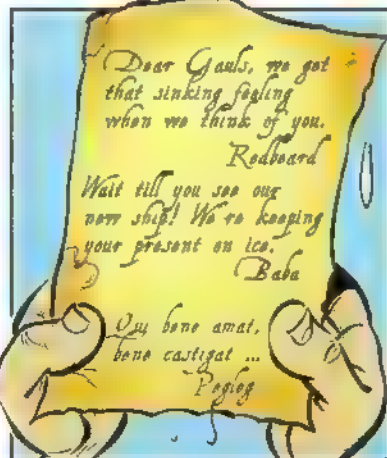 Dear Gauls, we get
that sinking feeling
when we think of you.
Redbeard
Wait till you see our
new ship! We're keeping
your present on ice.
Baba
Qui bene amat,
bene castigat ...
Pegleg